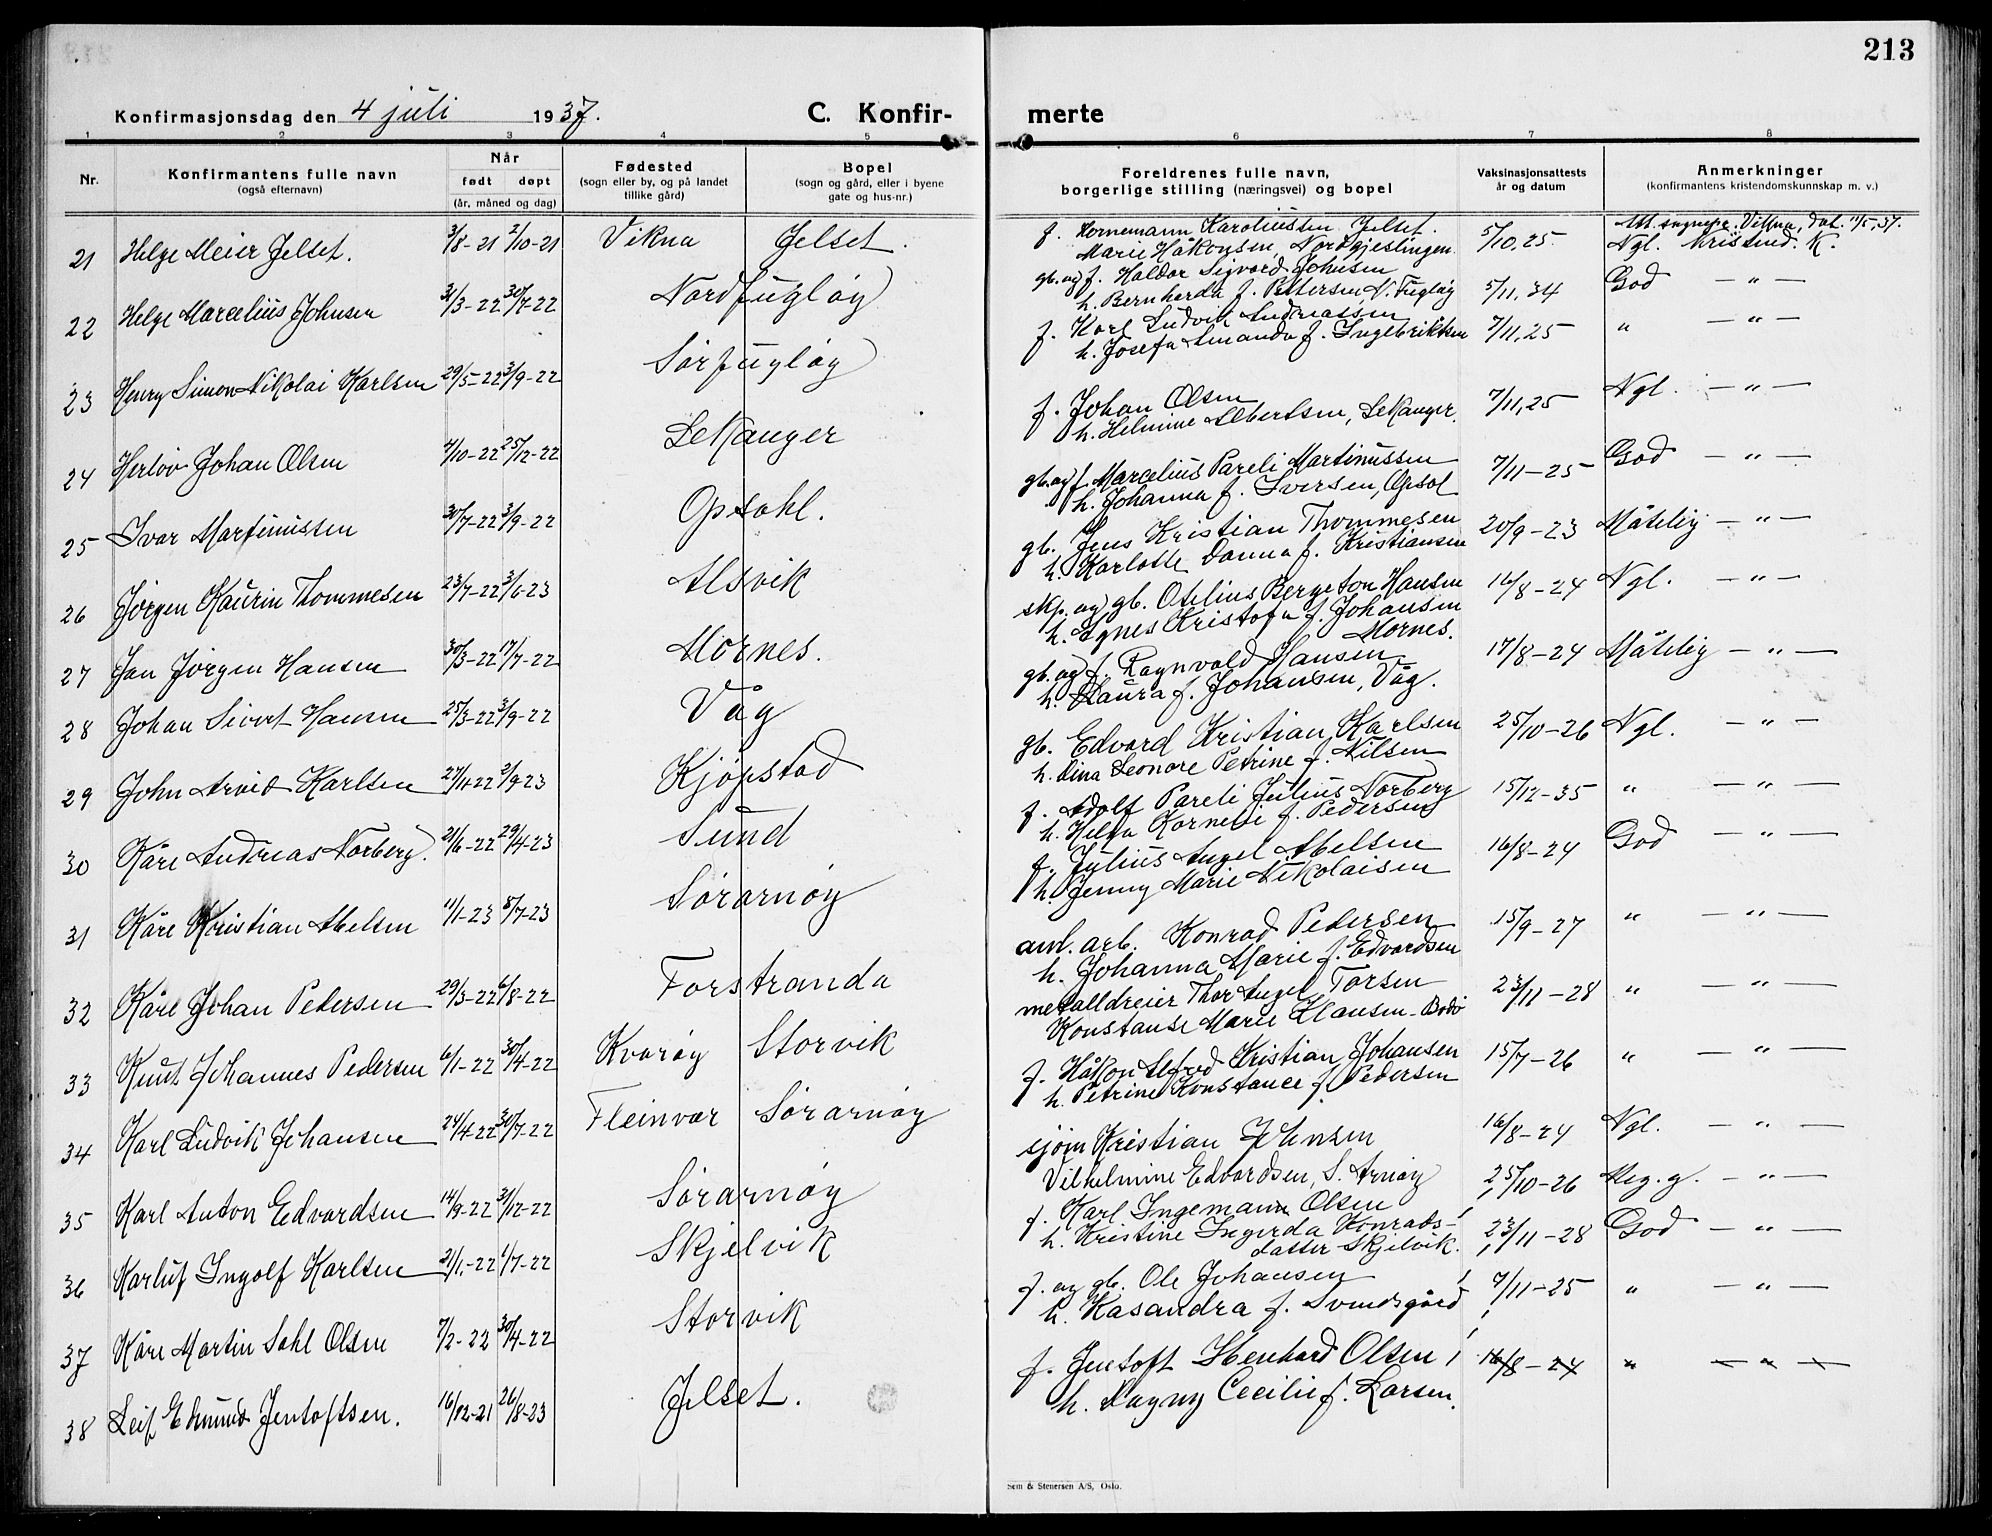 213
Konfirmasjonsdag den 4 juli 1937. C. Konfir-
merte
1 2 3 4 5 6 7 8
Nr.
Konfirmantens fulle navn
(også efternavn)
Når
født døpt
(år, måned og dag)
Fødested
(sogn eller by, og på landet
tillike gård)
Bopel
(sogn og gård, eller i byene
gate og hus-nr.)
Foreldrenes fulle navn,
borgerlige stilling (næringsvei) og bopel
Vaksinasjonsattests
år og datum
Anmerkninger
(konfirmantens kristendomskunnskap m. v.)
21 Helge Meier Jelset. 3/8-21 2/10-21 Vikna Jelset.
f. Hornemann Karoliussen Jelset.
Marie Håkonsen, Nordgjeslingen
5/10, 25
Att. sognepr. Vikna, dat. 11/5, 37.
Ngl. Kristend. K.
22 Helge Marcelius Johnsen 31/3-22 30/7-22 Nordfugløy
gb. og f. Haldor Sigvard Johnsen
h. Bernharda f. Pettersen N. Fugløy
5/11, 34 God — „ —
23 Henry Simon Nikolai Karlsen 29/5-22 3/9-22 Sørfugløy
f. Karl Ludvik Andreassen
h. Josefa Amanda f. Ingebriktsen
7/11, 25 „ — „ —
24 Herlov Johan Olsen 4/10-22 25/12-22 Lekanger
f. Johan Olsen
h. Helmine Albertsen, Lekanger.
7/11, 25 Ngl. — „ —
25 Ivar Martinussen 30/7-22 3/9-22 Opsahl.
gb. og f. Marcelius Pareli Martinussen
h. Johanna f. Iversen, Opsal
7/11-25 God — „ —
26 Jørgen Kaurin Thommesen 23/7-22 3/6-23 Alsvik
gb. Jens Kristian Thommesen
h. Karlotte Danna f. Kristiansen
20/9-23 Måtelig — „ —
27 Jan Jørgen Hansen 30/3-22 17/7-22 Mornes.
skp. og gb. Otelius Bergeton Hansen
h. Agnes Kristofa f. Johansen
Mornes.
16/8-24 Ngl. — „ —
28 Johan Sivert Hansen 25/3-22 3/9-22 Våg
gb. og f. Ragnvald Hansen
h. Laura f. Johansen, Våg.
17/8-24 Måtelig — „ —
29 John Arvid Karlsen 27/11-22 2/9-23 Kjøpstad
gb. Edvard Kristian Karlsen
h. Dina Leonore Petrine f. Nilsen
25/10-26 Ngl. — „ —
30 Kåre Andreas Norberg. 21/6-22 29/4-23 Sund
f. Adolf Pareli Julius Norberg
h. Helga Kornelie f. Pedersen
15/12-35 „ — „ —
31 Kåre Kristian Abelsen 11/1-23 8/7-23 Sørarnøy
f. Julius Angel Abelsen
h. Jenny Marie Nikolaisen
16/8-24 God — „ —
32 Kåre Johan Pedersen 29/3-22 6/8-22 Forstranda
anl. arb. Konrad Pedersen
h. Johanna Marie f. Edvardsen
15/9-27 „ — „ —
33 Knut Johannes Pedersen 6/1-22 30/4-22 Kvarøy Storvik
metalldreier Thor Angel Torsen
Konstanse Marie Hansen - Bodø
23/11-28 „ — „ —
34 Karl Ludvik Johansen 24/4-22 30/7-22 Fleinvær Sørarnøy
f. Håkon Alfred Kristian Johansen
h. Petrine Konstance f. Pedersen
15/7-26 „ — „ —
35 Karl Anton Edvardsen 14/9-22 31/12-22 Sørarnøy
sjøm Kristian Johnsen
Vilhelmine Edvardsen, S. Arnøy
16/8-24 Ngl. — „ —
36 Karluf Ingolf Karlsen 21/1-22 1/7-22 Skjelvik
f. Karl Ingemann Olsen
h. Kristine Ingerda Konrads-
datter Skjelvik.
25/10-26 Meg. g. — „ —
37 Kåre Martin Dahl Olsen 7/2-22 30/4-22 Storvik
f. og gb. Ole Johansen
h. Kasandra f. Svendsgård
23/11-28 God — „ —
38 Leif Edmund Jentoftsen. 16/12-21 26/8-23 Jelset.
f. Jentoft Ebenhard Olsen
h. Dagny Cecilie f. Larsen.
7/11-25 „ — „ —
16/8-24 „ — „ —
Sem & Stenersen A/S, Oslo.